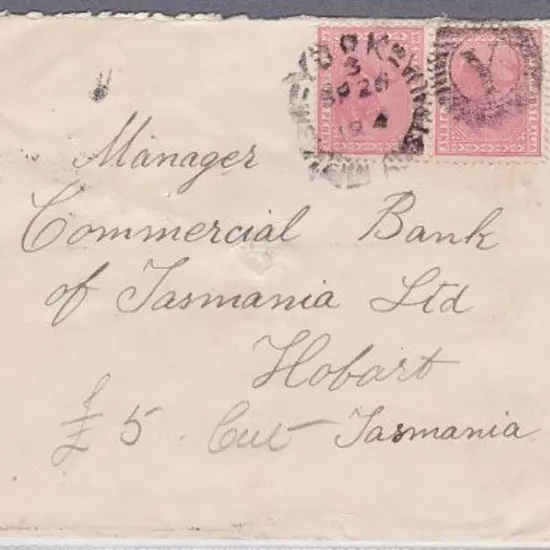 Manager
Commercial Bank
of Tasmania Ltd
Hobart
£5. Tasmania